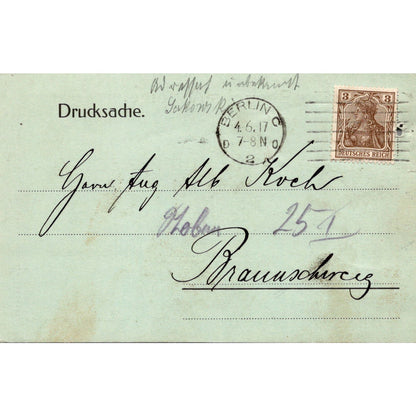 Adressat unbekannt
Drucksache.
BERLIN C
4.6.17
7-8 N
2
3 3
DEUTSCHES REICH
Herrn Aug Alb Koch
25 I
Braunschweig